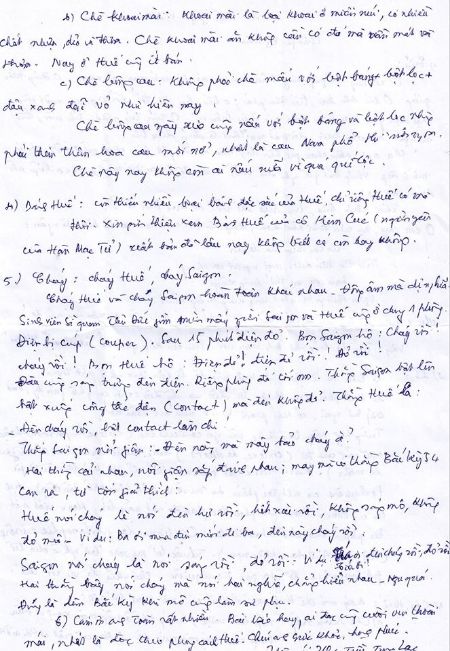 b) Chè khoai mài: Khoai mài là loại khoai ở miền núi, có nhiều
chất nhựa, dẻo và thơm. Chè khoai mài ăn không cần có đá mà vẫn mát và
thơm. Nay ở Huế cũng ít bán.
c) Chè bông cau: Không phải chè nấu với bột báng + bột lọc +
đậu xanh đãi vỏ như hiện nay.
Chè bông cau ngày xưa cũng nấu với bột báng và bột lọc nhưng
phải thêm hoa cau mới nở, nhất là cau Nam phổ thì
Chè này nay không còn ai nấu nữa vì quá
4) Bánh Huế: còn thiếu nhiều loại bánh đặc sắc của Huế chỉ riêng Huế có mà
thôi. Xin giới thiệu xem Bánh Huế của cô Kim Cúc (người yêu
của Hàn Mạc Tử) xuất bản đã lâu nay không biết có còn hay không.
5) Cháy: cháy Huế, cháy Saigon.
Cháy Huế và cháy Saigon hoàn toàn khác nhau. Đồng âm mà dị nghĩa
Sinh viên sĩ quan Thủ Đức gồm mấy người Saigon và Huế cùng ở chung 1 phòng.
Điện bị cúp (couper). Sau 15 phút điện đỏ. Bọn Saigon hô: Cháy rồi!
cháy rồi! Bọn Huế hô: Điện đỏ! điện đỏ rồi! Đỏ rồi!
Đâu cũng sáng trưng đèn điện. Riêng phòng đó tối om. Thằng Saigon bật lên
bật xuống công tắc đèn (contact) mà đèn không đỏ. Thằng Huế la:
- Đèn cháy rồi, bật contact làm chi!
Thằng Saigon nổi giận: - Đèn này, mà mày bảo cháy à?
Hai thằng cãi nhau, nổi giận sắp đánh nhau; may mà có thằng Bắc kỳ 54
can ra, từ tốn giải thích:
Huế nói cháy là nói đèn hư rồi, hết xài rồi, không sáng mô, không
đỏ mô - Ví dụ: Bà ơi mua đèn mới đi bà, đèn này cháy rồi.
Saigon nói cháy là nói sáng rồi, đỏ rồi: Ví dụ đèn cháy rồi, đỏ rồi
Hai thằng bây nói cháy mà nói hai nghĩa, chẳng hiểu nhau
Đúng là dân Bắc Kỳ khi mô cũng làm sư phụ.
6) Cám ơn anh Toàn rất nhiều. Bài báo hay, ai đọc cũng cười vui thoải
mái, nhất là đọc theo giọng của Huế. Chúc anh sức khỏe, hạnh phúc.